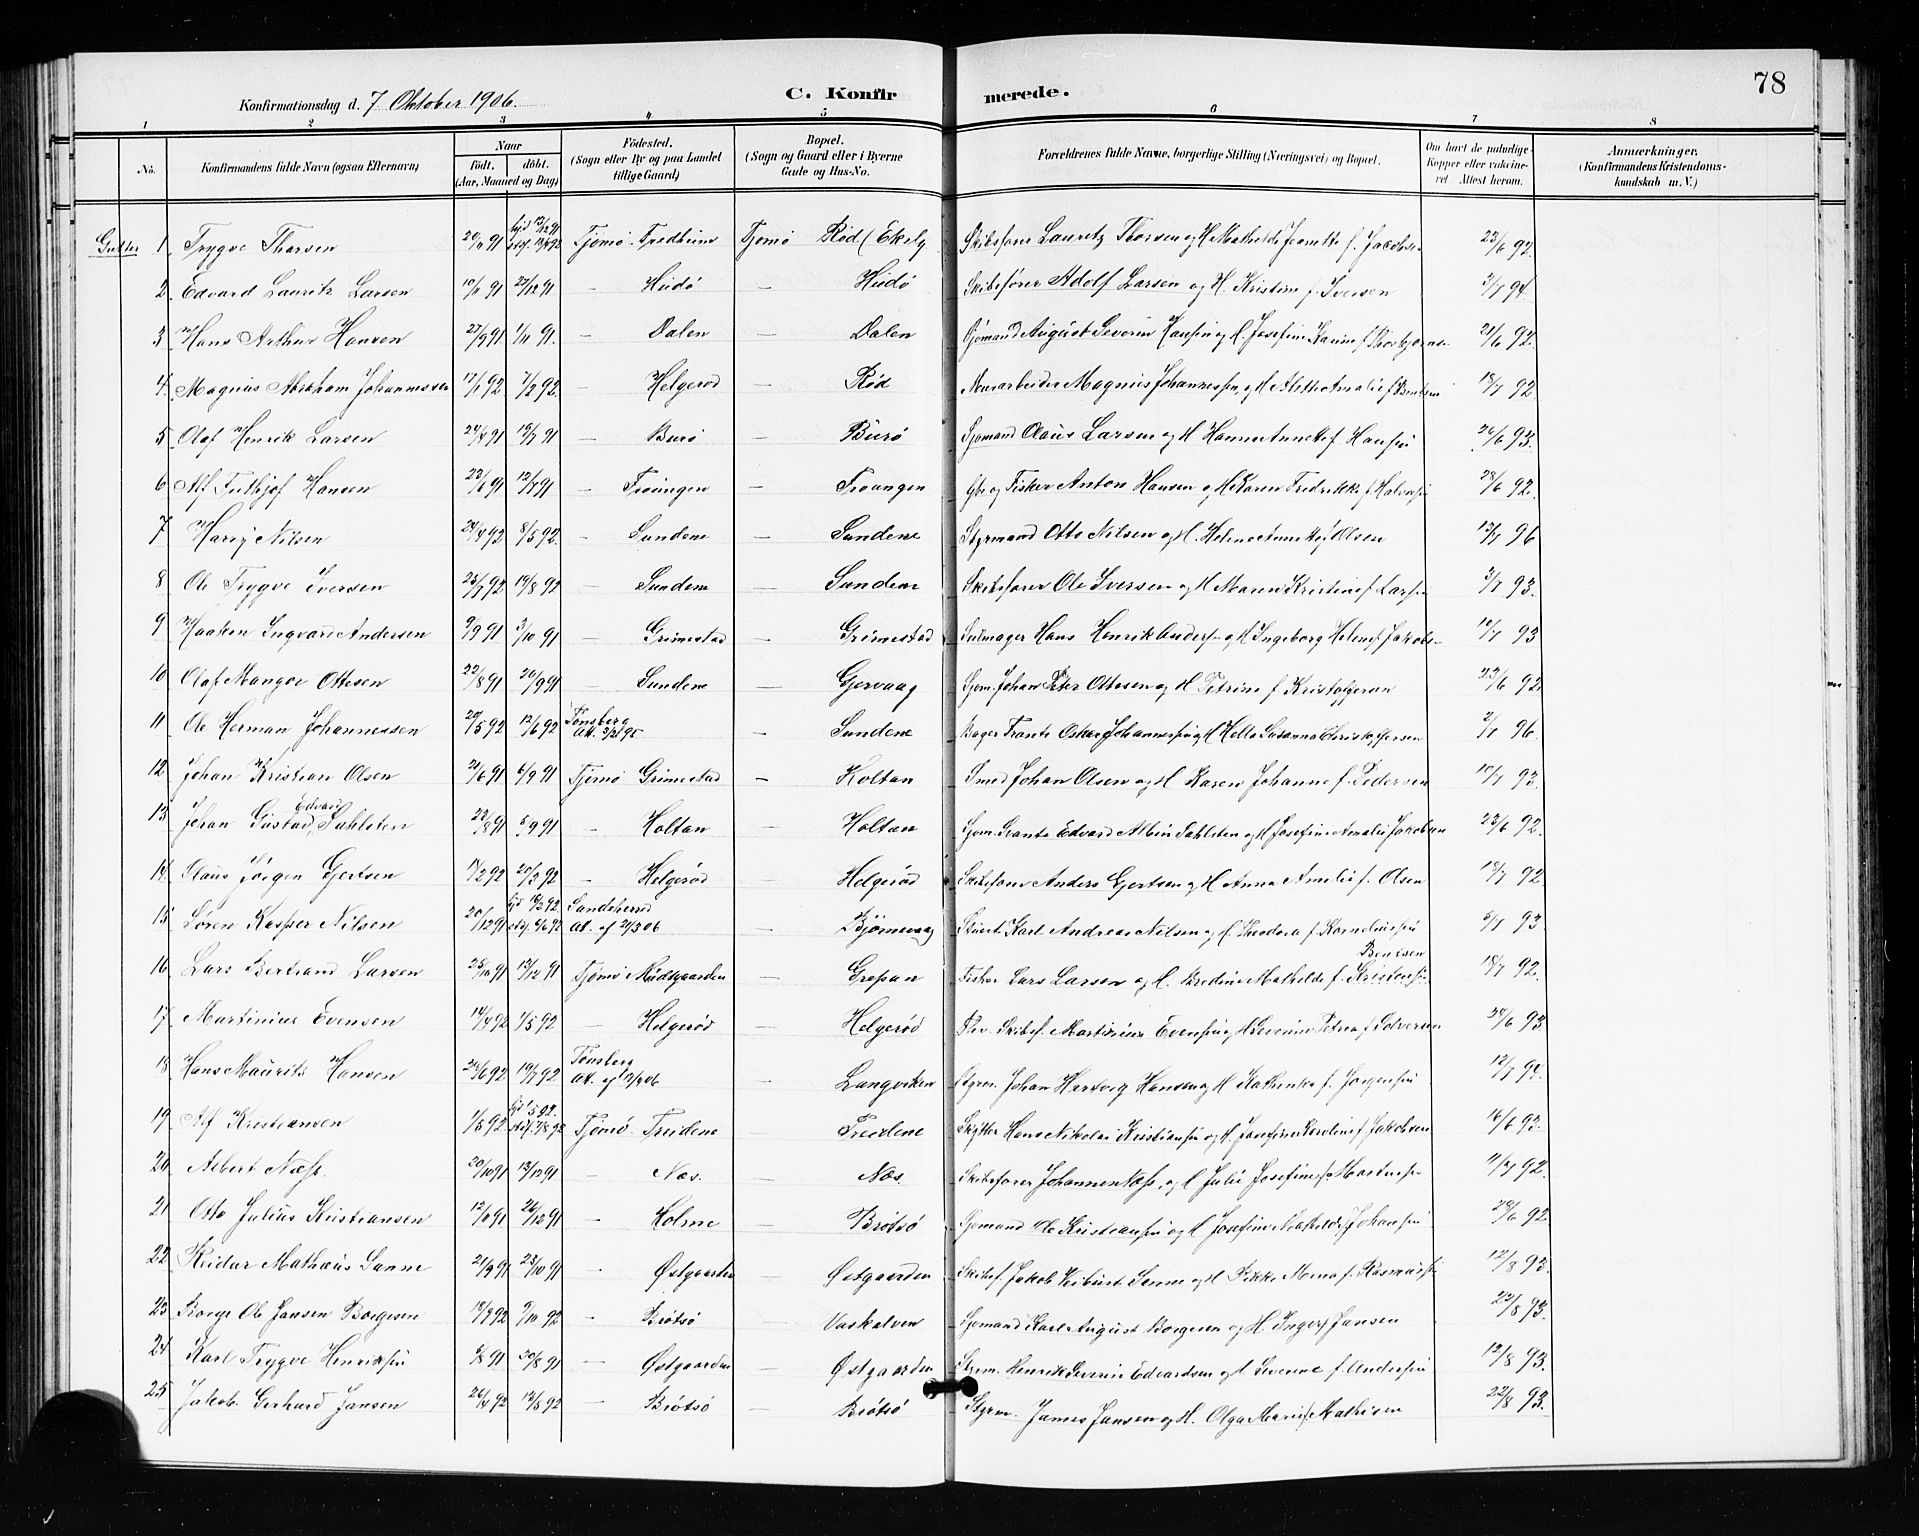 78
Konfirmationsdag d. 7 Oktober 1906.
C. Konfirmerede.
1 2 3 4 5 6 7 8
No. Konfirmandens fulde Navn (ogsaa Efternavn) Naar Födt. döbt. (Aar, Maaned og Dag) Födested. (Sogn eller By og paa Landet tillige Gaard) Bopæl. (Sogn og Gaard eller i Byerne Gade og Hus-No. Forældrenes fulde Navne, borgerlige Stilling (Næringsvei) og Bopæl. Om havt de naturlige Kopper eller vaccineret Attest herom. Anmærkninger. (Konfirmandens Kristendomskundskab m. V.)
Gutter 1 Trygve Thorsen 20/11 91 Tjømø Tjømø Rød (Ekely Skibsfører Lauritz Thorsen og H. Mathilde Jeanette f. Jacobsen 23/6 92.
2 Edvard Lauritz Larsen 10/11 91 27/12 91 – Hudø – Hudø Skibsfører Adolf Larsen og H. Kristine f. Iversen 3/7 94.
3 Hans Arthur Hansen 27/9 91 1/11 91. – Dalen – Dalen Sjømand August Severin Hansen og H. Josefine Karine f. 21/6 92.
4. Magnus Abraham Johannessen 17/1 92 7/2 92. – Helgerød – Rød Magnus Johannessen og H. Amalie f. 18/7 92
5 Olaf Henrik Larsen 24/4 91 19/7 91 – Burø – Burø Sjømand Claus Larsen og H. Hanna Annette f. Hansen 26/6 93.
6 Alf Frithjof Hansen 23/6 91 12/7 91 – –  og Fisker Anton Hansen og H. Karen Fredrikke f. Halvorsen 28/6 92.
7 Harry Nilsen 24/4 92 8/5 92. – Sundene – Sundene Styrmand Otto Nilsen og H. Helene Annette f. Olsen 13/7 96
8 Ole Trygve Iversen 25/7 92 14/8 92 – Sundene – Sundene Skibsfører Ole Iversen og H. Maren Kristine f. Larsen 3/7 93.
9 Haakon Ingvard Andersen 9/9 91 3/10 91 – Grimestad – Grimestad Seilmager Hans Henrik Anders. og H. Ingeborg Helene f. Jakobs. 10/7 93
10 Olaf Mangor Ottesen 22/8 91 20/9 91 – Sundene – Gjervaag Sjøm. Johan Peter Ottesen og H. Petrine f. Kristofersen 23/6 92
11 Ole Herman Johannessen 20/5 92 12/6 92 Tønsberg – Sundene Bager Frants Oskar Johannessen og H. Susanna Christoffersen 2/7 96
12 Johan Kristian Olsen 21/6 91 6/9 91 Tjømø Grimestad – Holtan Smed Johan Olsen og H. Karen Johanne f. Pedersen 10/7 93.
13 Johan Gustav Edvard Sahlsten 22/8 91 5/9 91 – Holtan – Holtan Sjøm. Frants Edvard Albin Sahlsten og H. Josefine Amalie Jakobsen 23/6 92.
14. Claus Jørgen Gjertsen 1/2 92 20/3 92 – Helgerød – Helgerød Skibsfører Anders Gjertsen og H. Anna Amelie f. Olsen 18/7 92
15 Søren Kasper Nilsen 20/12 91 Sandeherred – Bjørnevaag Karl Andreas Nilsen og H. Theodora f. Korneliussen 5/7 93
16 Lars Bertrand Larsen 25/10 91 13/12 91 Tjømø Midtgaarden – Grepan Fisker Lars Larsen og H. Bredine Mathilde f. Kristensen 18/7 92.
17 Martinius Evensen 14/4 92 1/5 92 – Helgerød – Helgerød Skibsf. Martinius Evensen og H. Severine Petrea f. 30/6 93
18 Hans Maurits Hansen 24/6 92 19/7 92 Tønsberg – Langviken Styrm. Johan Hartvig Hansen og H. Kathinka f. Jørgensen 12/7 94.
19 Alf Kristiansen 1/5 92 Tjømø Treidene – Treidene Skytter Hans Nikolai Kristiansen og H. Josefine Karoline f. Jakobsen 16/6 93.
20 Albert Næss. 20/10 91 13/12 91 – Næs. – Næs. Skibsfører Johannes Næss, og H. Julie Josefine f. Martins. 11/7 92.
21 Otto Julius Kristiansen 12/11 91 26/12 91 – Holme – Brøtsø Sjømand Ole Kristiansen og H. Josefine Mathilde f. Johansen 28/6 92
22 Reidar Mathæus Sanne 21/9 91 25/10 91 – Østgaarden – Østgaarden Skibsf. Jakob Sanne og H. Rikke Mena f. Rasmussen 12/8 93.
23 Borge Ole Jansen Borgesen 18/9 92 9/10 92 – Brøtsø – Vaskalven Sjømand Karl August Borgesen og H. Inger f. Jansen 22/8 93.
24 Karl Trygve Henriksen 9/8 91 30/8 91 – Østgaarden – Østgaarden Styrm. Henrik Severin Edvardsen og H. Severine f. Andersen 12/8 93.
25 Jakob Gerhard Jansen 26/4 92 12/5 92 – Brøtsø – Brøtsø Styrm. James Jansen og H. Olga Marie f. Mathisen 22/8 93.